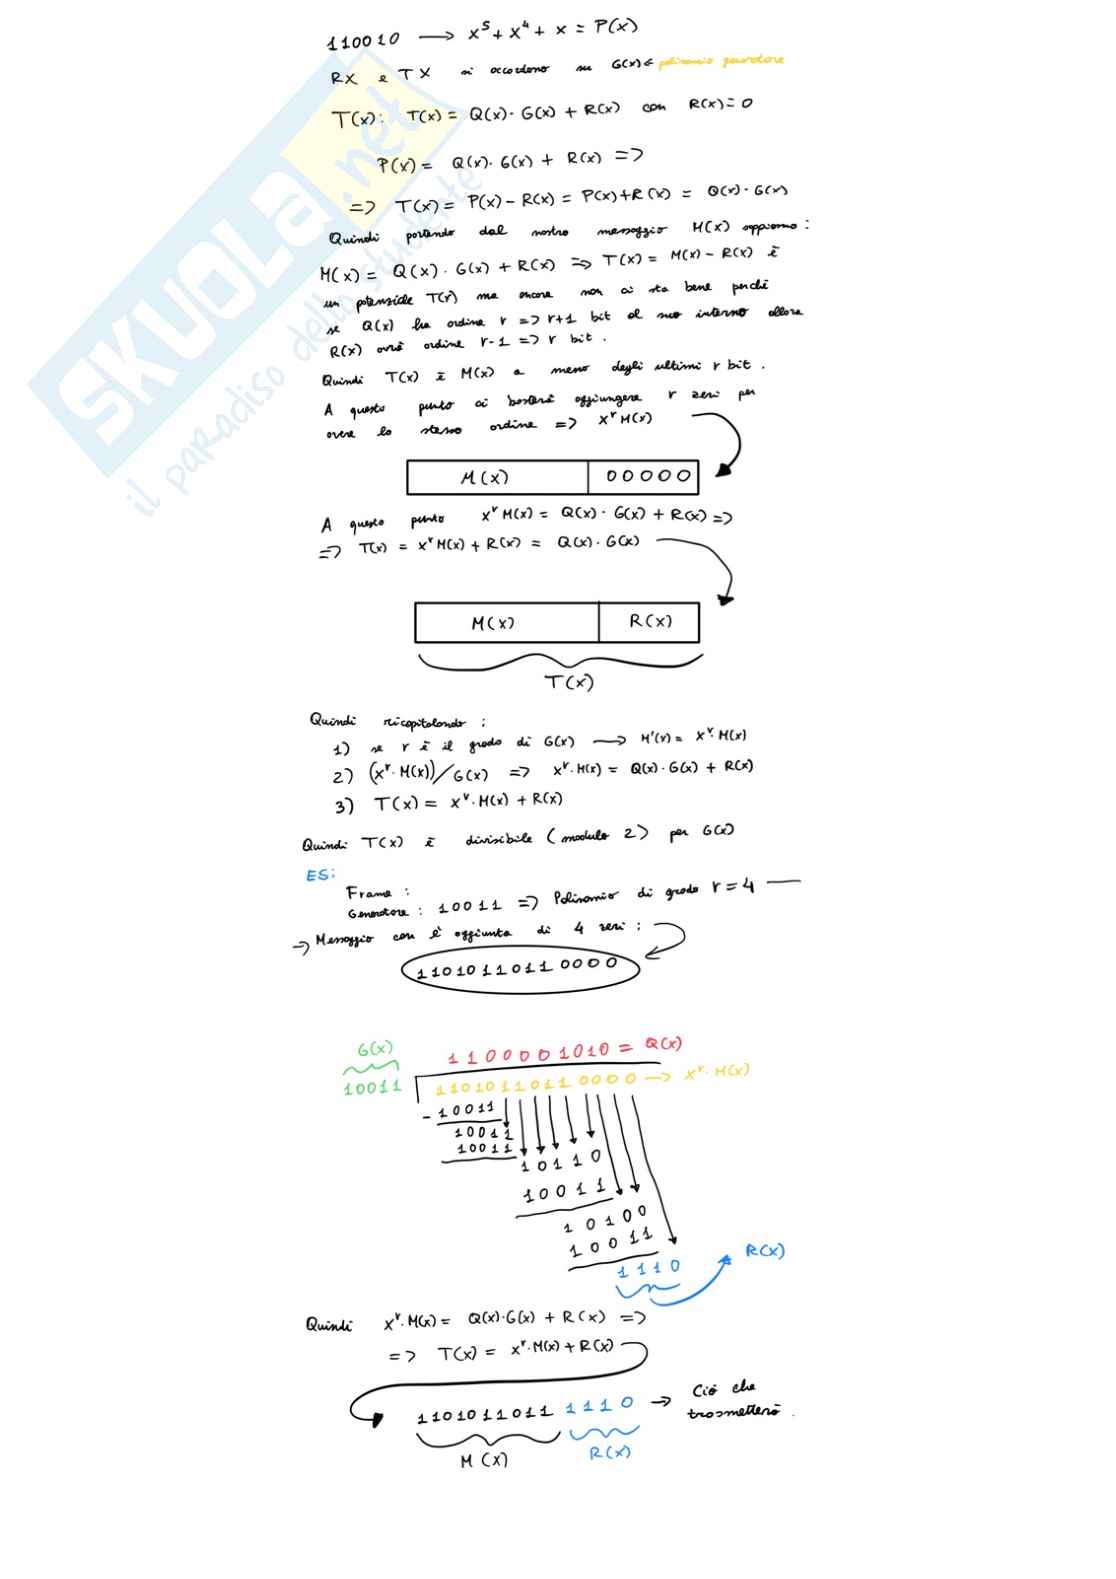 110010 → x⁵ + x⁴ + x = P(x)
RX e TX si accordano su G(x) ← polinomio generatore
T(x): T(x) = Q(x)·G(x) + R(x) con R(x) = 0
P(x) = Q(x)·G(x) + R(x) =>
=> T(x) = P(x) - R(x) = P(x)+R(x) = Q(x)·G(x)
Quindi partendo dal nostro messaggio M(x) sappiamo:
M(x) = Q(x)·G(x) + R(x) => T(x) = M(x) - R(x) è
un potenziale T(x) ma ancora non ci sta bene perchè
se Q(x) ha ordine r => r+1 bit al suo interno allora
R(x) avrà ordine r-1 => r bit.
Quindi T(x) è M(x) a meno degli ultimi r bit.
A questo punto ci basterà aggiungere r zeri per
avere lo stesso ordine => xʳM(x)
M(x) 00000
A questo punto xʳM(x) = Q(x)·G(x) + R(x) =>
=> T(x) = xʳM(x) + R(x) = Q(x)·G(x)
M(x) R(x)
T(x)
Quindi ricapitolando:
1) se r è il grado di G(x) → M'(x) = xʳ·M(x)
2) (xʳ·M(x))/G(x) => xʳ·M(x) = Q(x)·G(x) + R(x)
3) T(x) = xʳ·M(x) + R(x)
Quindi T(x) è divisibile (modulo 2) per G(x)
ES:
Frame:
Generatore: 10011 => Polinomio di grado r = 4
→ Messaggio con l'aggiunta di 4 zeri:
11010110110000
G(x) 1100001010 = Q(x)
10011 11010110110000 → xʳ·M(x)
- 10011
10011
10011
10110
10011
10100
10011
1110 R(x)
Quindi xʳ·M(x) = Q(x)·G(x) + R(x) =>
=> T(x) = xʳ·M(x) + R(x)
1101011011 1110 → Ciò che
trasmetterò.
M(x) R(x)
SKUOLA.net
il paRadiso dello studente